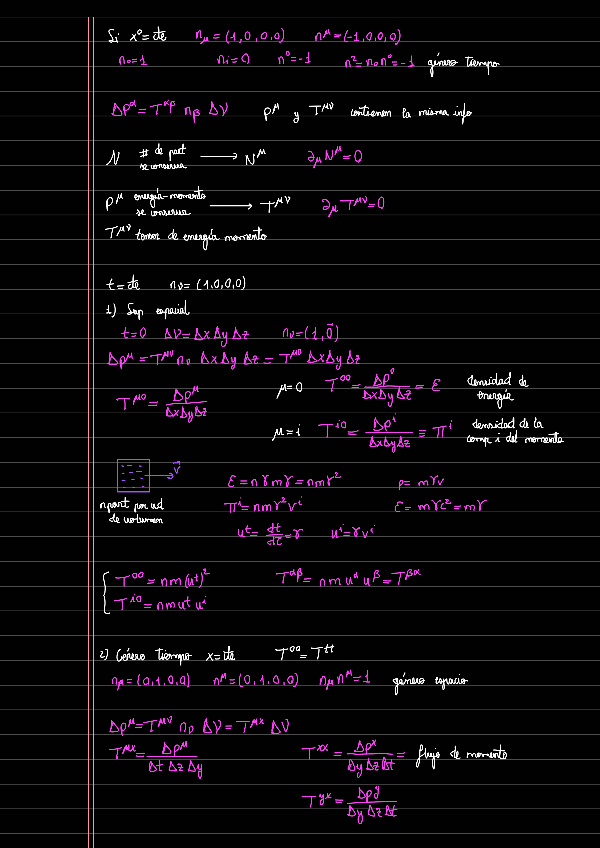 Si x⁰=cte n_μ=(1,0,0,0) n^μ=(-1,0,0,0)
n₀=1 n_i=0 n⁰=-1 n²=n₀n⁰=-1 género tiempo
Δp^α=T^{αβ} n_β ΔV p^μ y T^{μν} contienen la misma info
N # de part se conserva → N^μ ∂_μ N^μ=0
p^μ energía-momento se conserva → T^{μν} ∂_μ T^{μν}=0
T^{μν} tensor de energía momento
t=cte n_ν=(1,0,0,0)
1) Sup espacial
t=0 ΔV=ΔxΔyΔz n_ν=(1,0⃗)
Δp^μ=T^{μν} n_ν ΔxΔyΔz=T^{μ0} ΔxΔyΔz
T^{μ0}=Δp^μ/ΔxΔyΔz
μ=0 T^{00}=Δp⁰/ΔxΔyΔz=ε densidad de energía
μ=i T^{i0}=Δp^i/ΔxΔyΔz≡π^i densidad de la comp i del momento
v⃗
n part por ud de volumen
ε=nγmγ=nmγ² p=mγv
π^i=nmγ²v^i ε=mγc²=mγ
u^t=dt/dτ=γ u^i=γv^i
T^{00}=nm(u^t)² T^{αβ}=nmu^α u^β=T^{βα}
T^{i0}=nmu^t u^i
2) Género tiempo x=cte T^{00}=T^{tt}
n_μ=(0,1,0,0) n^μ=(0,1,0,0) n_μn^μ=1 género espacio
Δp^μ=T^{μν} n_ν ΔV=T^{μx} ΔV
T^{μx}=Δp^μ/Δt Δz Δy T^{xx}=Δp^x/ΔyΔzΔt= flujo de momento
T^{yx}=Δp^y/ΔyΔzΔt